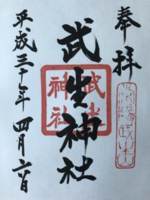 奉拝
武生神社
武生神社
平成三十年四月六日